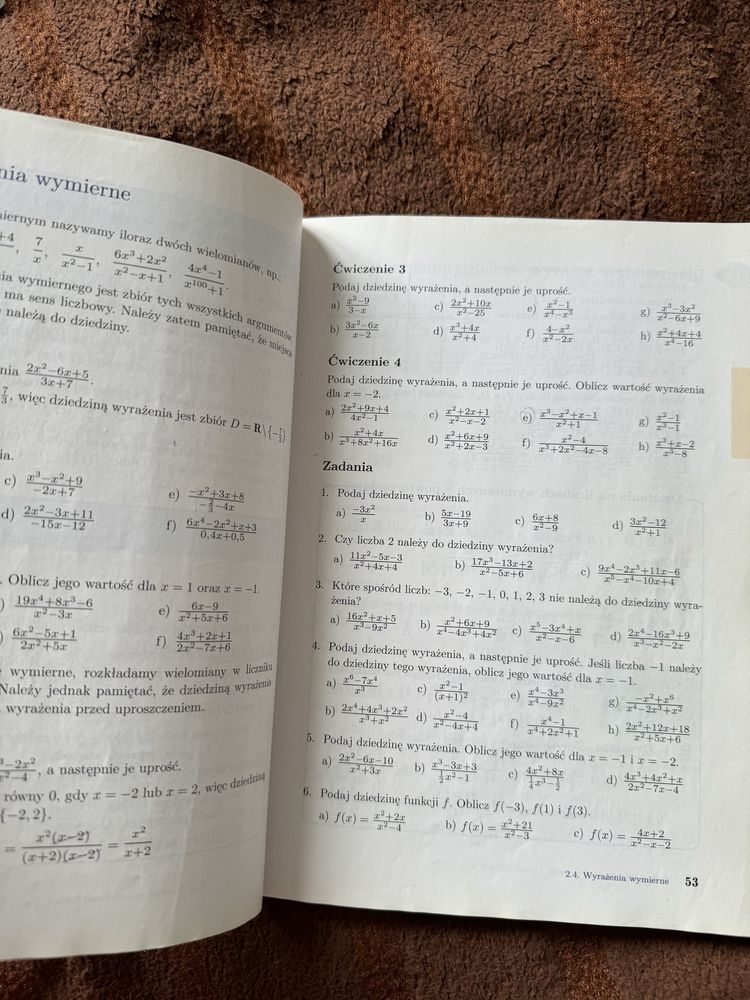 nia wymierne
miernym nazywamy iloraz dwóch wielomianów, np.:
+4, 7/x, x/(x²−1), (6x³+2x²)/(x²−x+1), (4x⁴−1)/(x¹⁰⁰+1).
ia wymiernego jest zbiór tych wszystkich argumentów,
ma sens liczbowy. Należy zatem pamiętać, że miejsca
należą do dziedziny.
nia (2x²−6x+5)/(3x+7).
7/3, więc dziedziną wyrażenia jest zbiór D = R\{−7/3}.
ia.
c) (x³−x²+9)/(−2x+7)
e) (−x²+3x+8)/(−2/3−4x)
d) (2x²−3x+11)/(−15x−12)
f) (6x⁴−2x²+x+3)/(0,4x+0,5)
. Oblicz jego wartość dla x = 1 oraz x = −1.
) (19x⁴+8x³−6)/(x²−3x)
e) (6x−9)/(x²+5x+6)
) (6x²−5x+1)/(2x²+5x)
f) (4x³+2x+1)/(2x²−7x+6)
wymierne, rozkładamy wielomiany w liczniku
Należy jednak pamiętać, że dziedziną wyrażenia
wyrażenia przed uproszczeniem.
³−2x²/x²−4, a następnie je uprość.
równy 0, gdy x = −2 lub x = 2, więc dziedziną
{−2, 2}.
= x²(x−2)/((x+2)(x−2)) = x²/(x+2)
Ćwiczenie 3
Podaj dziedzinę wyrażenia, a następnie je uprość.
a) (x²−9)/(3−x) c) (2x²+10x)/(x²−25) e) (x²−1)/(x⁴−x³) g) (x³−3x²)/(x²−6x+9)
b) (3x²−6x)/(x−2) d) (x³+4x)/(x²+4) f) (4−x²)/(x²−2x) h) (x²+4x+4)/(x⁴−16)
Ćwiczenie 4
Podaj dziedzinę wyrażenia, a następnie je uprość. Oblicz wartość wyrażenia
dla x = −2.
a) (2x²+9x+4)/(4x²−1) c) (x²+2x+1)/(x²−x−2) e) (x³−x²+x−1)/(x²+1) g) (x²−1)/(x³−1)
b) (x²+4x)/(x³+8x²+16x) d) (x²+6x+9)/(x²+2x−3) f) (x²−4)/(x³+2x²−4x−8) h) (x³+x−2)/(x³−8)
Zadania
1. Podaj dziedzinę wyrażenia.
a) (−3x²)/x b) (5x−19)/(3x+9) c) (6x+8)/(x²−9) d) (3x²−12)/(x²+1)
2. Czy liczba 2 należy do dziedziny wyrażenia?
a) (11x²−5x−3)/(x²+4x+4) b) (17x³−13x+2)/(x²−5x+6) c) (9x⁴−2x³+11x−6)/(x⁵−x⁴−10x+4)
3. Które spośród liczb: −3, −2, −1, 0, 1, 2, 3 nie należą do dziedziny wyra-
żenia?
a) (16x²+x+5)/(x³−9x²) b) (x²+6x+9)/(x⁴−4x³+4x²) c) (x⁵−3x⁴+x)/(x²−x−6) d) (2x⁴−16x³+9)/(x³−x²−2x)
4. Podaj dziedzinę wyrażenia, a następnie je uprość. Jeśli liczba −1 należy
do dziedziny tego wyrażenia, oblicz jego wartość dla x = −1.
a) (x⁶−7x⁴)/x³ c) (x²−1)/(x+1)² e) (x⁴−3x³)/(x⁴−9x²) g) (−x²+x⁶)/(x⁴−2x³+x²)
b) (2x⁴+4x³+2x²)/(x³+x²) d) (x²−4)/(x²−4x+4) f) (x⁴−1)/(x⁴+2x²+1) h) (2x²+12x+18)/(x²+5x+6)
5. Podaj dziedzinę wyrażenia. Oblicz jego wartość dla x = −1 i x = −2.
a) (2x²−6x−10)/(x²+3x) b) (x³−3x+3)/(½x²−1) c) (4x²+8x)/(¼x³−½) d) (4x³+4x²+x)/(2x²−7x−4)
6. Podaj dziedzinę funkcji f. Oblicz f(−3), f(1) i f(3).
a) f(x) = (x²+2x)/(x²−4) b) f(x) = (x²+21)/(x²−3) c) f(x) = (4x+2)/(x²−x−2)
2.4. Wyrażenia wymierne 53